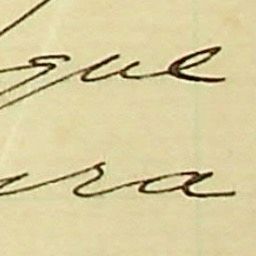 que
ra